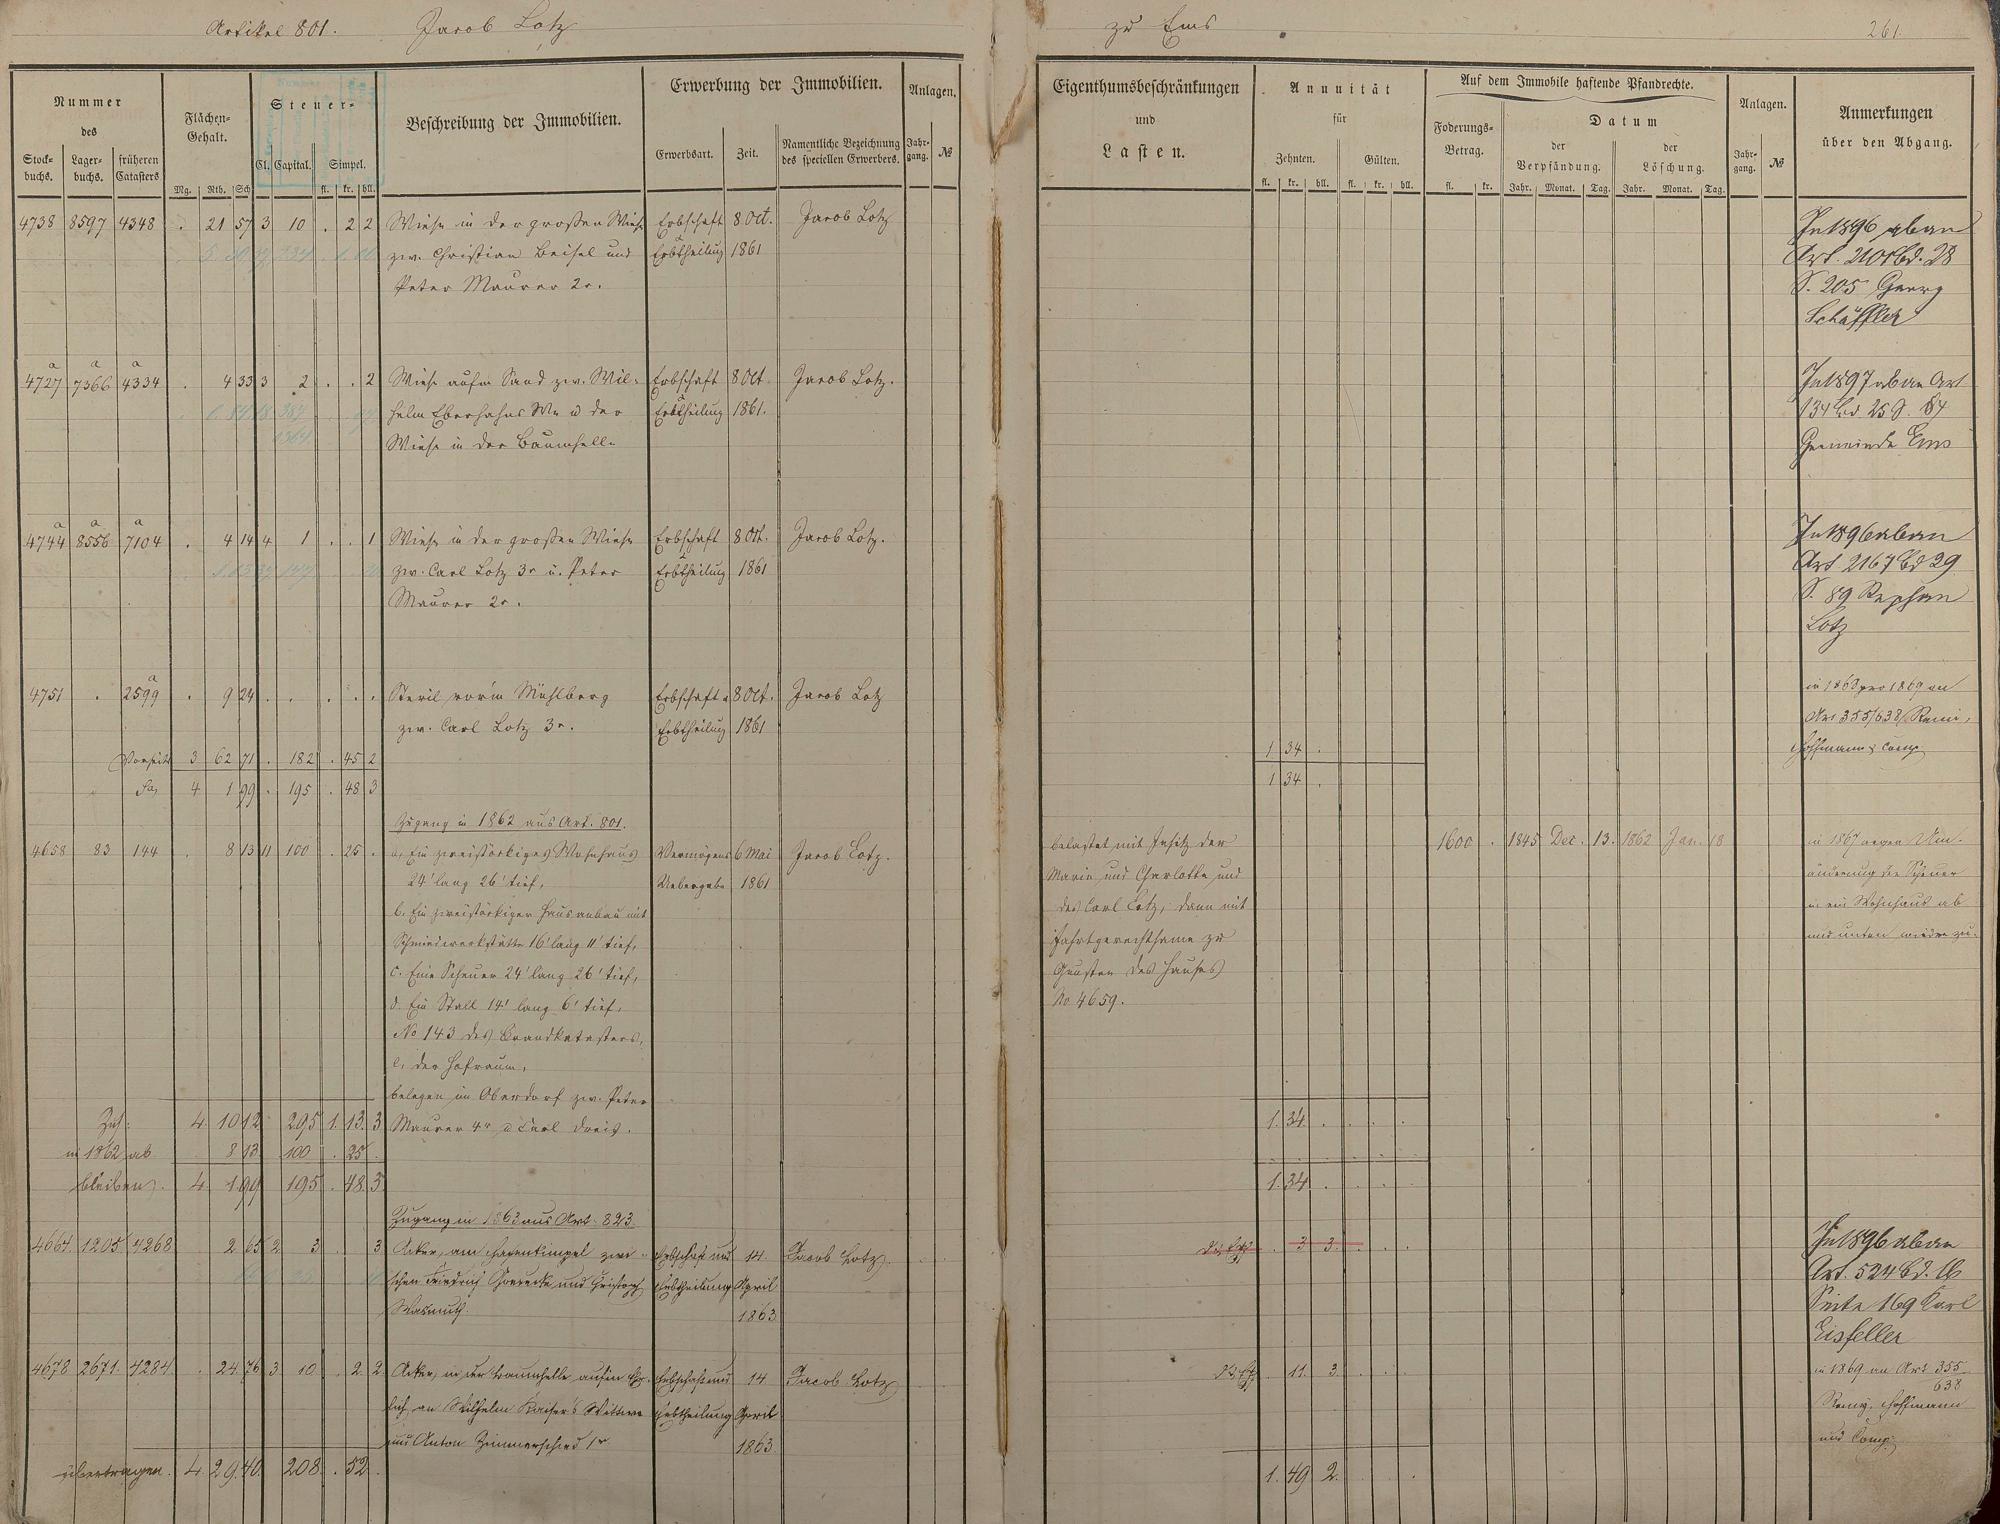 Artikel 801. Jacob Lotz zu Ems 261.
Nummer
des
Stock-
buchs.
Lager-
buchs.
früheren
Catasters
Flächen-
Gehalt.
Mg. Rth. Sch
Steuer-
Cl. Capital. Simpel.
fl. kr. hll.
Beschreibung der Immobilien.
Erwerbung der Immobilien.
Erwerbsart. Zeit.
Namentliche Bezeichnung
des speciellen Erwerbers.
Anlagen.
Jahr-
gang. №
Eigenthumsbeschränkungen
und
Lasten.
Annuität
für
Zehnten. Gülten.
fl. kr. hll. fl. kr. hll.
Auf dem Immobile haftende Pfandrechte.
Foderungs-
Betrag.
fl. kr.
Datum
der
Verpfändung.
der
Löschung.
Jahr. Monat. Tag. Jahr. Monat. Tag.
Anlagen.
Jahr-
gang. №
Anmerkungen
über den Abgang.
4738 8597 4348 . 21 57 3 10 . 2 2 Wiese in der großen Wiese Erbschaft 8 Oct. Jacob Lotz
zw. Christian Beisel und Erbtheilung 1861
Peter Maurer 2r.
In 1896 ab an
Art. 2101 Bd. 28
S. 205 Georg
Schäffler
a a a
4727 7366 4334 . 4 33 3 2 . . 2 Wiese aufm Sand zw. Wil- Erbschaft 8 Oct. Jacob Lotz.
helm Eberhahns We u der Erbtheilung 1861.
Wiese in der Baumhelle
In 1897 ab an Art
134 Bd 25 S. 84
Gemeinde Ems
a a a
4744 8556 7104 . 4 14 4 1 . . 1 Wiese in der großen Wiese Erbschaft 8 Oct. Jacob Lotz.
zw. Carl Lotz 3r u. Peter Erbtheilung 1861
Maurer 2r.
In 1896 ab an
Art 2167 Bd 29
S. 89 Stephan
Lotz
a
4751 . 2599 . 9 24 . . . . . Steril vor'm Mühlberg Erbschaft u 8 Oct. Jacob Lotz
zw. Carl Lotz 3r. Erbtheilung 1861
in 1863 pro 1869 an
Art 355/638 Remi,
Hoffmann & Comp
Vorseite 3 62 71 . 182 . 45 2 1 34 .
Sa 4 1 99 . 195 . 48 3 1 34 .
Zugang in 1862 aus Art. 801.
4658 83 144 . 8 13 11 100 . 25 . a, Ein zweistöckiges Wohnhaus Vermögens 6 Mai Jacob Lotz.
24' lang 26' tief, Uebergabe 1861
b. Ein zweistöckiger Hausanbau mit
Schmiedwerkstätte 16' lang 11' tief,
c. Eine Scheuer 24' lang 26' tief,
d. Ein Stall 14' lang 6' tief,
No 143 des Brandkatasters,
e, der Hofraum,
belegen im Oberdorf zw. Peter
Maurer 4r u Carl Dreis.
belastet mit Insitz der
Marie und Charlotte und
des Carl Lotz, dann mit
Fahrtgerechtsame zu
Gunsten des Hauses
No 4659.
1600 . 1845 Dec. 13. 1862 Jan. 18
in 1867 wegen Um-
änderung der Scheuer
in ein Wohnhaus ab
und unten wieder zu.
Zus: 4. 10 12 295 1. 13. 3 1. 34.
in 1862 ab 8 13 100 . 25 .
bleiben. 4 1 99 195 . 48. 3 1. 34.
Zugang in 1863 aus Art. 823
4664. 1205 4268 2 65 2 3 . 3 Acker, am Hasenkimpel zwi- Erbschaft und 14. Jacob Lotz.
schen Friedrich Goedecke und Christoph Erbtheilung April
Wasmuth. 1863
. 3 3.
In 1896 ab an
Art. 524 Bd. 16
Seite 169 Karl
Eisfeller
4678 2671. 4284. . 24. 76 3 10 . 2 2. Acker, in der Baumhelle aufm Erbschaft und 14 Jacob Lotz
an Wilhelm Kaiser's Wittwe Erbtheilung April
und Anton Zimmerschied 1r 1863
. 11. 3.
in 1869 an Art 355
638
Remy, Hoffmann
und Comp.
übertragen. 4. 29. 40. 208. . 52. 1. 49 2.